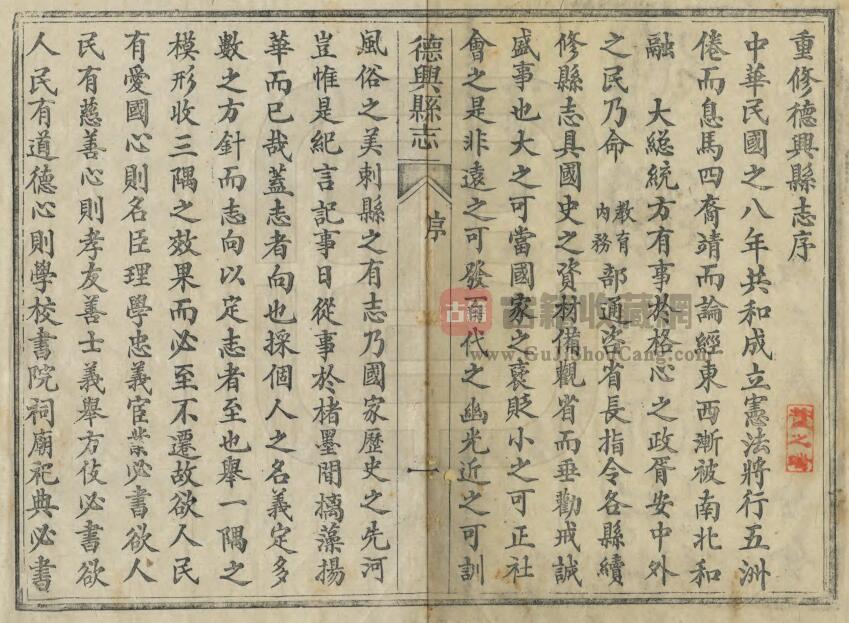 重修德興縣志序
中華民國之八年共和成立憲法將行五洲
倦而息馬四裔靖而論經東西漸被南北和
融　大總統方有事於格心之政胥安中外
之民乃命　教育內務部通咨省長指令各縣續
修縣志具國史之資材備觀省而垂勸戒誠
盛事也大之可當國家之褒貶小之可正社
會之是非遠之可發百代之幽光近之可訓
德興縣志　序　一
風俗之美刺縣之有志乃國家歷史之先河
豈惟是紀言記事日從事於楮墨間摛藻揚
華而已哉蓋志者向也採個人之名義定多
數之方針而志向以定志者至也舉一隅之
模形收三隅之效果而必至不遷故欲人民
有愛國心則名臣理學忠義宦業必書欲人
民有慈善心則孝友善士義舉方伎必書欲
人民有道德心則學校書院祠廟祀典必書
古籍收藏網
www.GuJiShouCang.com